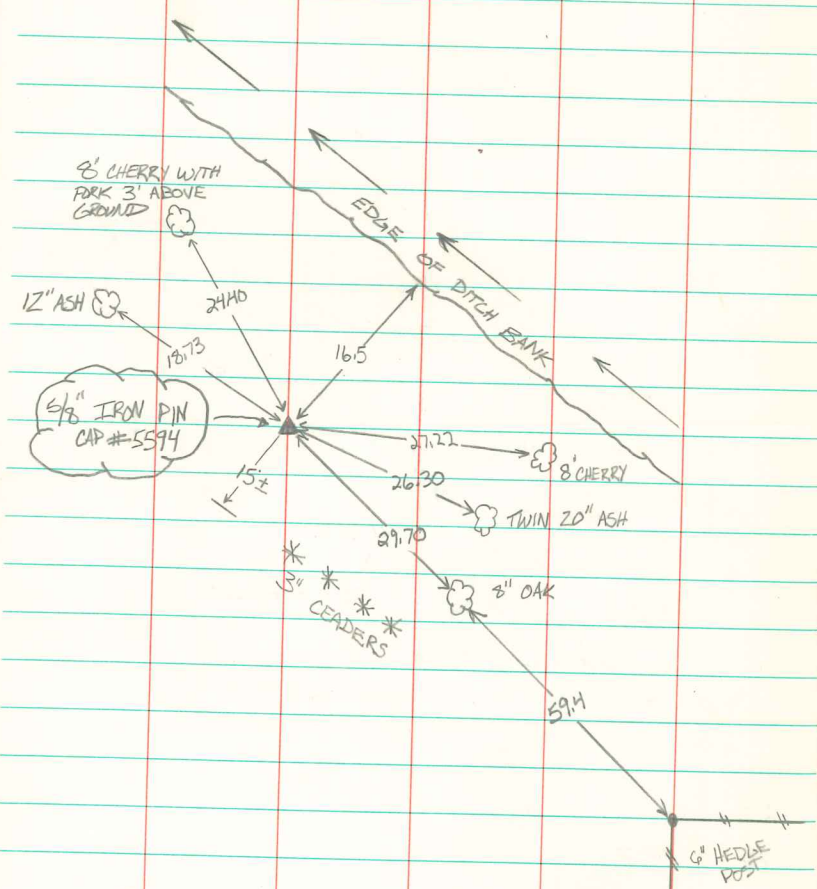 8' CHERRY WITH
FORK 3' ABOVE
GROUND
EDGE OF DITCH BANK
12" ASH
24.40
18.73
16.5
5/8" IRON PIN
CAP #5594
27.22
8' CHERRY
15'±
26.30
TWIN 20" ASH
29.70
3"
CEADERS
8" OAK
59.4
6" HEDGE
POST